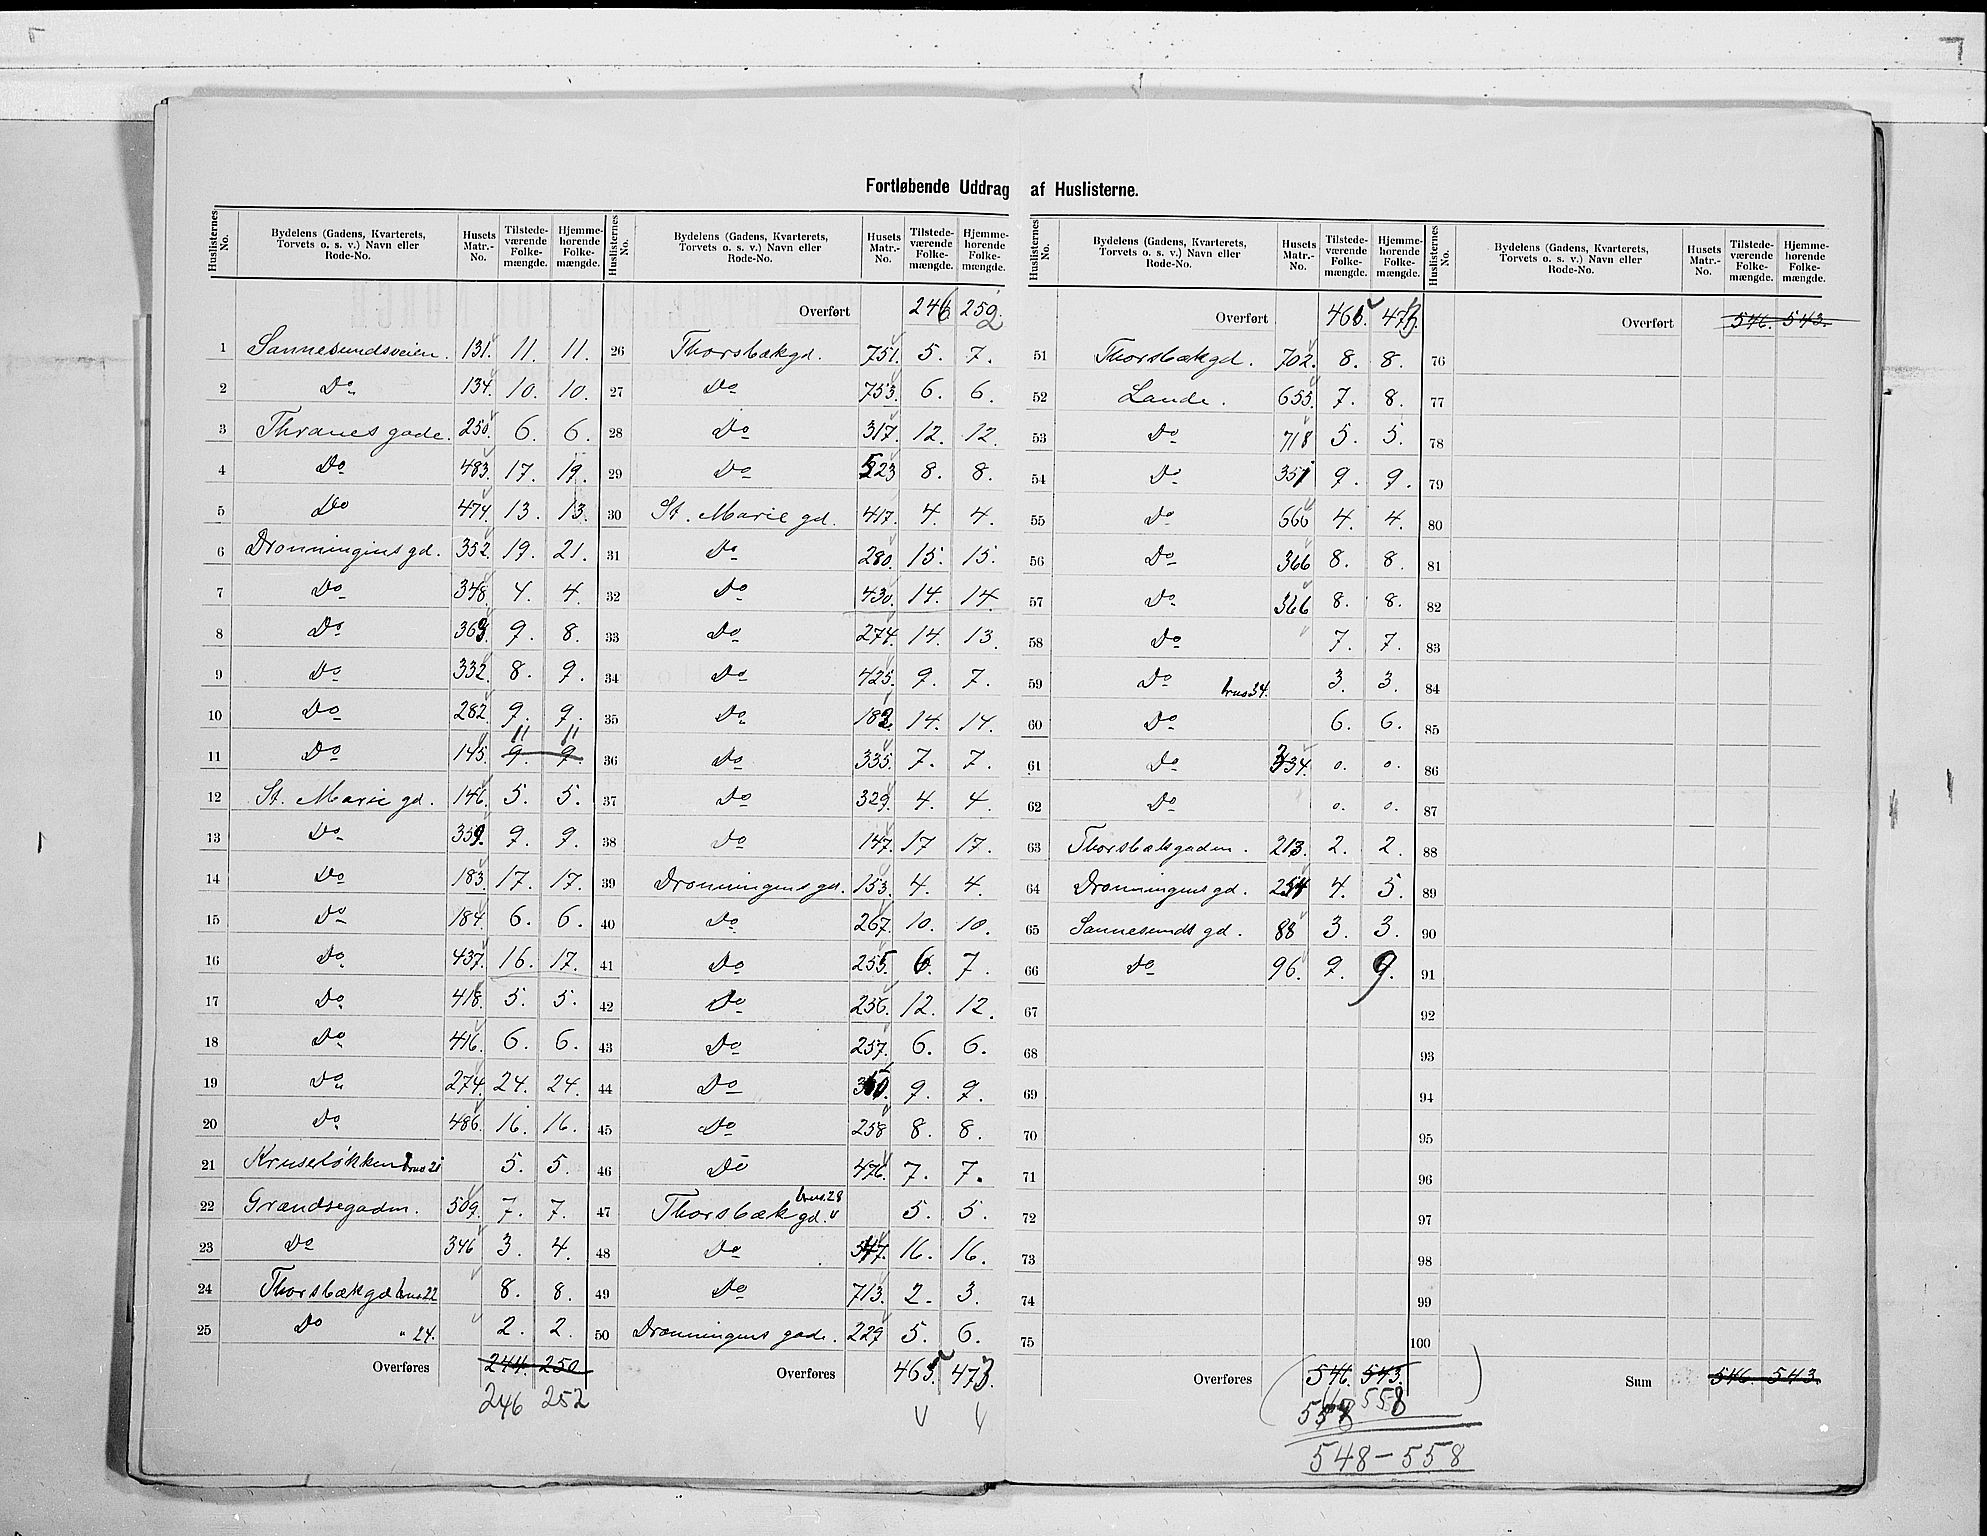 Fortløbende Uddrag af Huslisternes.
Huslisternes No. | Bydelens (Gadens, Kvarterets, Torvets o. s. v.) Navn eller Rode-No. | Husets Matr.-No. | Tilstedeværende Folkemængde. | Hjemmehørende Folkemængde.
1 Sannesundsveien. 131. 11. 11.
2 Do 134. 10. 10.
3 Thranes gade. 250. 6. 6.
4 Do 483. 17. 19.
5 Do 474. 13. 13.
6 Dronningens gd. 352. 19. 21.
7 Do 348. 4. 4.
8 Do 363. 9. 8.
9 Do 332. 8. 9.
10 Do 282. 9. 9.
11 Do 145. 9. 9. 11 11
12 St. Marie gd. 146. 5. 5.
13 Do 359. 9. 9.
14 Do 183. 17. 17.
15 Do 184. 6. 6.
16 Do 437. 16. 17.
17 Do 418. 5. 5.
18 Do 416. 6. 6.
19 Do 274. 24. 24.
20 Do 486. 16. 16.
21 Kruseløkken 5. 5.
22 Grændsegaden. 509. 7. 7.
23 Do 346 3. 4.
24 Thorsbækgd 22 8. 8.
25 Do " 24. 2. 2.
Overføres 244. 250
246 252
Huslisternes No. | Bydelens (Gadens, Kvarterets, Torvets o. s. v.) Navn eller Rode-No. | Husets Matr.-No. | Tilstedeværende Folkemængde. | Hjemmehørende Folkemængde.
Overført 246 252
26 Thorsbækgd. 751. 5. 7.
27 Do 753. 6. 6.
28 Do 317. 12. 12.
29 Do 523 8. 8.
30 St. Marie gd. 417. 4. 4.
31 Do 280. 15. 15.
32 Do 430. 14. 14.
33 Do 274. 14. 13.
34 Do 425. 9. 7.
35 Do 182. 14. 14.
36 Do 335. 7. 7.
37 Do 329. 4. 4.
38 Do 147. 17 17.
39 Dronningens gd. 153. 4. 4.
40 Do 267. 10. 10.
41 Do 255. 6. 7.
42 Do 256. 12. 12.
43 Do 257. 6. 6.
44 Do 9. 9.
45 Do 258 8. 8.
46 Do 476. 7. 7.
47 Thorsbæk gd. 28 5. 5.
48 Do 16. 16.
49 Do 713. 2. 3.
50 Dronningens gade. 229 5. 6.
Overføres 465. 473.
Huslisternes No. | Bydelens (Gadens, Kvarterets, Torvets o. s. v.) Navn eller Rode-No. | Husets Matr.-No. | Tilstedeværende Folkemængde. | Hjemmehørende Folkemængde.
Overført 465. 473.
51 Thorsbækgd. 702. 8. 8.
52 Lande. 655. 7. 8.
53 Do 718 5. 5.
54 Do 351 9. 9.
55 Do 666 4. 4.
56 Do 366 8. 8.
57 Do 366 8. 8.
58 Do 7. 7.
59 Do 3. 3.
60 Do 34. 6. 6.
61 Do 334. 0. 0.
62 Do 0. 0.
63 Thorsbækgaden. 213. 2. 2.
64 Dronningens gd. 254 4. 5.
65 Sannesunds gd. 88 3. 3.
66 Do 96. 9. 9.
67
68
69
70
71
72
73
74
75
Overføres 546. 543.
558
548 – 558
Huslisternes No. | Bydelens (Gadens, Kvarterets, Torvets o. s. v.) Navn eller Rode-No. | Husets Matr.-No. | Tilstedeværende Folkemængde. | Hjemmehørende Folkemængde.
Overført 546. 543.
76
77
78
79
80
81
82
83
84
85
86
87
88
89
90
91
92
93
94
95
96
97
98
99
100
Sum 546. 543.